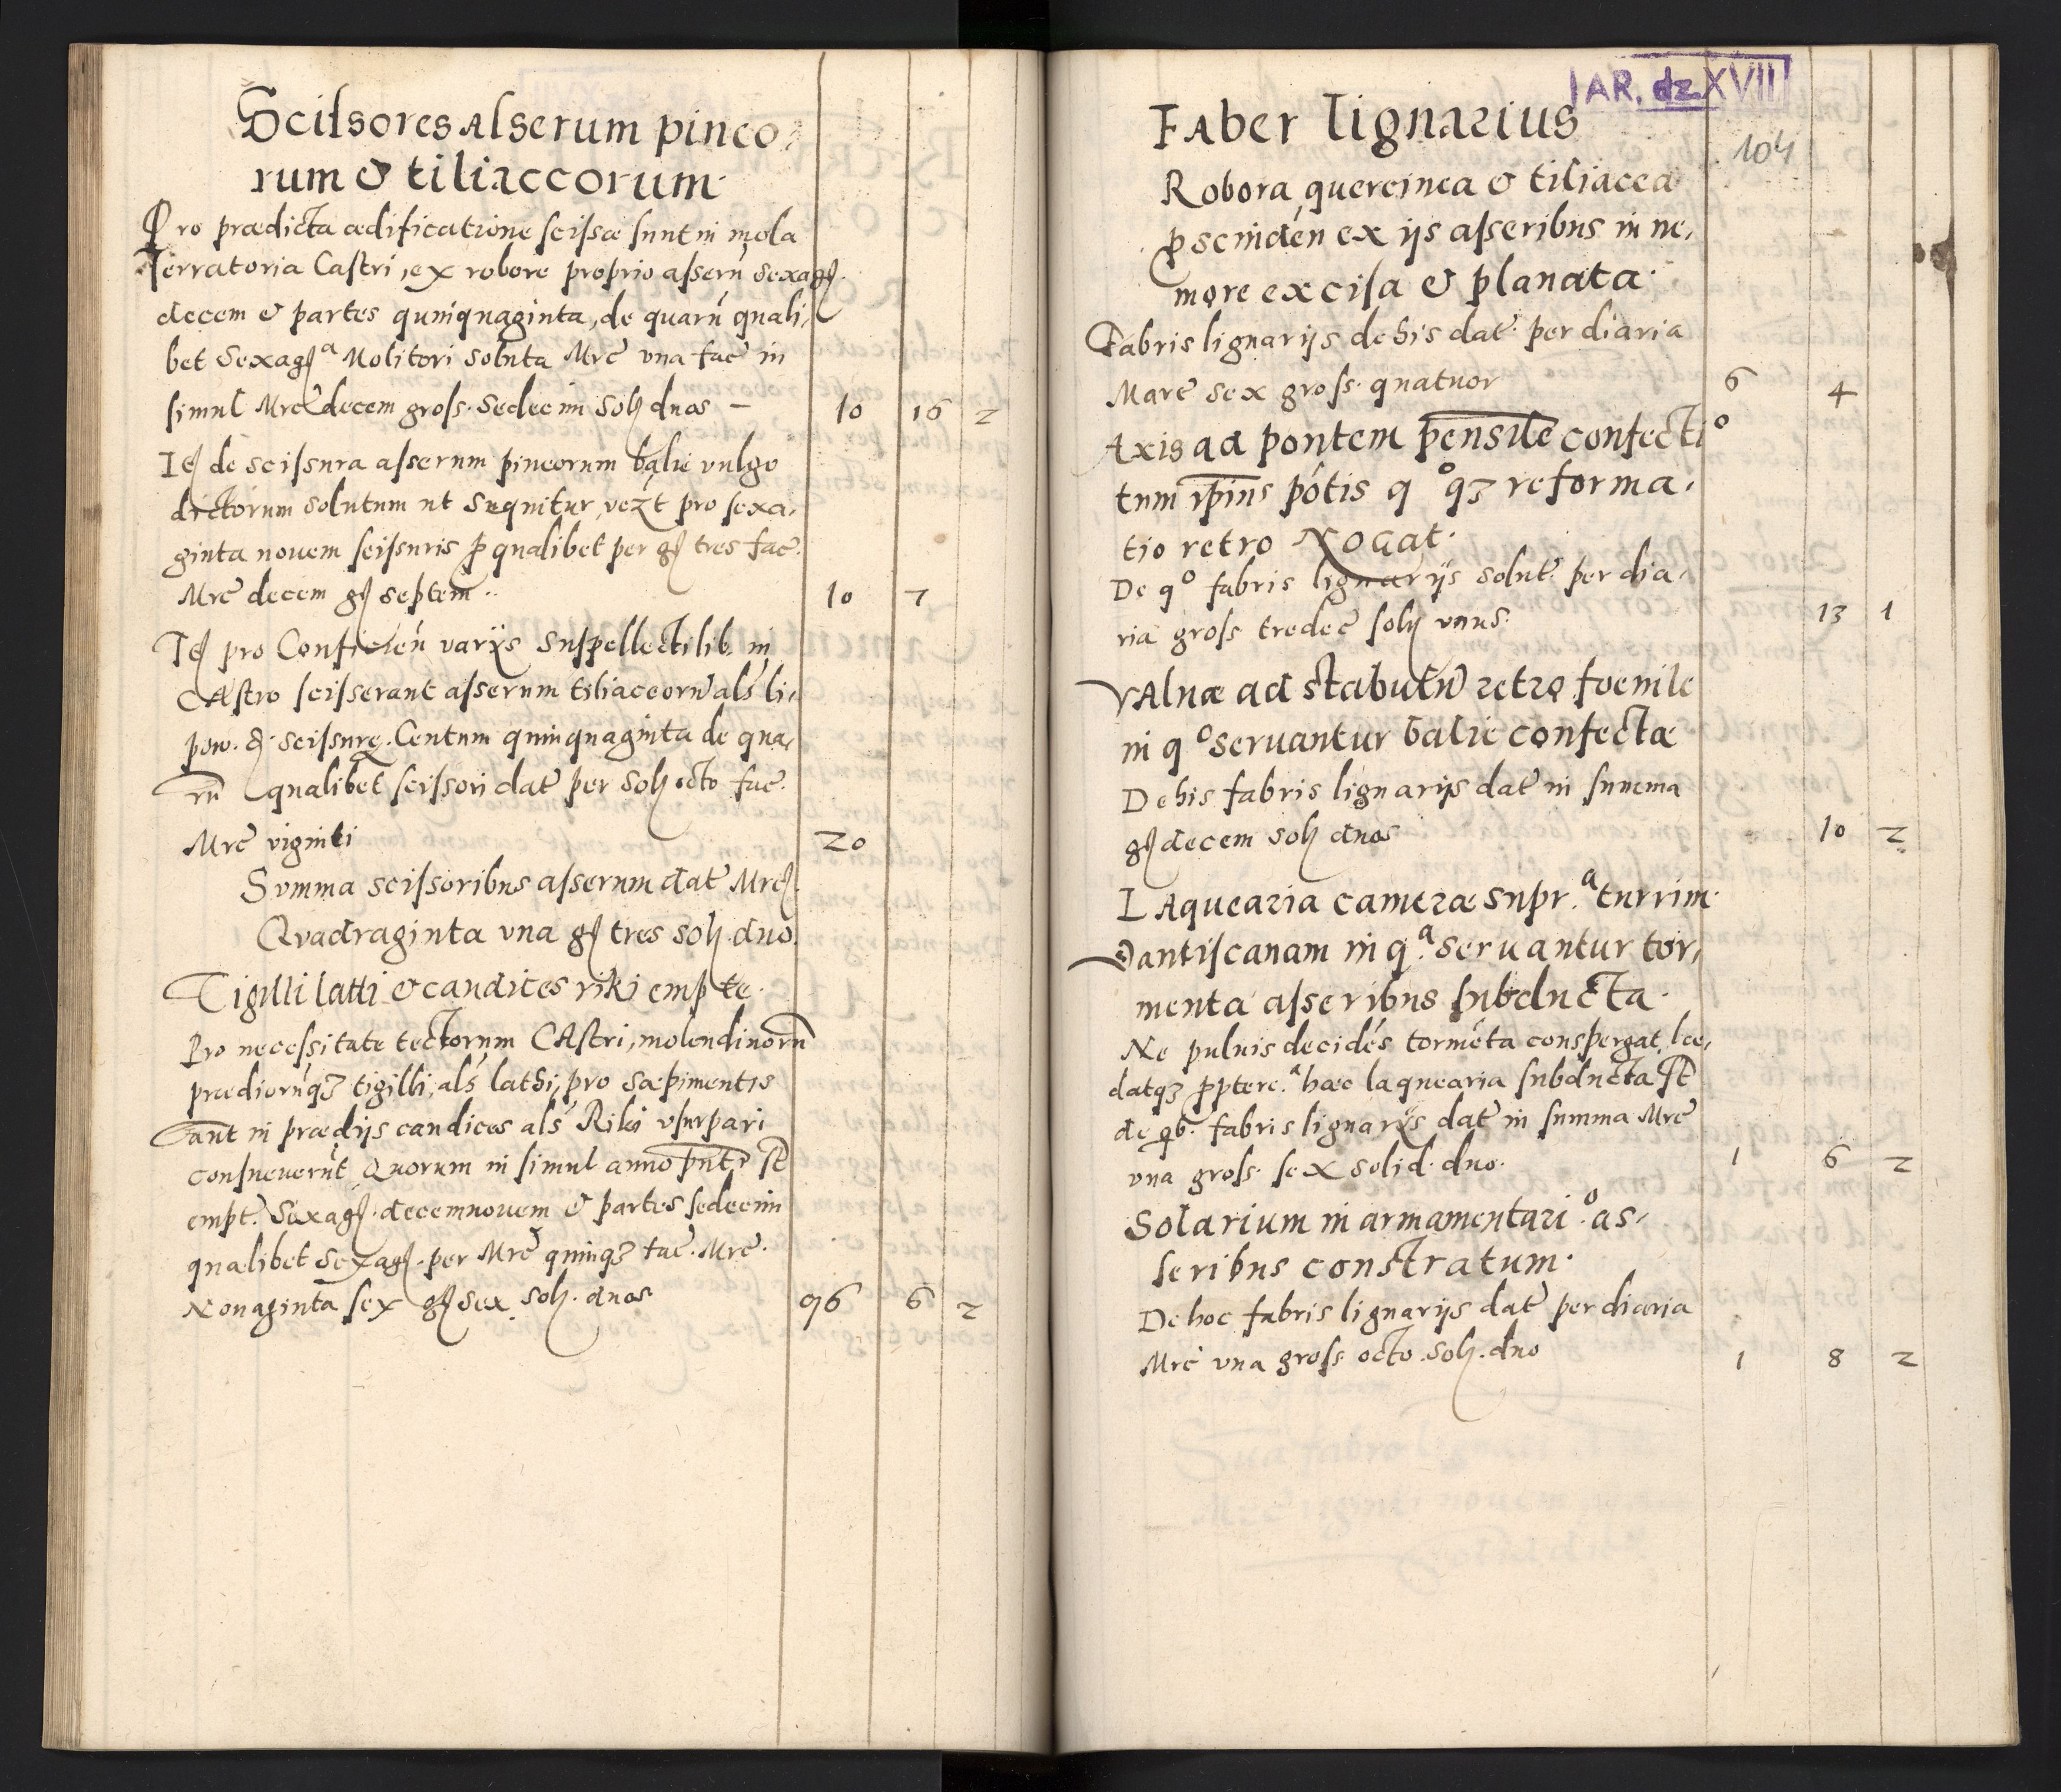 Scissores Asserum pineo,
rum & tiliaceorum.
Pro prædicta ædificatione scissæ sunt in mola
Serratoria Castri, ex robore proprio asserū sexag.
decem & partes quinquaginta, de quarū quali,
bet Sexagᵃ Molitori soluta Mrc̄ una fac̄ in
simul Mrc̄ decem gross. Sedecim Soł duos — 10 16 2
It̃ de scissura asserum pineorum balie vulgo
dictorum solutum ut Sequitur, vezt pro sexa,
ginta novem scissuris ꝑ qualibet per gſ tres fac̄.
Mrc̄ decem gſ septem .. 10 7
It̃ pro Conficień varijs Suspellectilib. in
CAstro scisserant asserum tiliaceorū als̄ li,
pow. ſ. scissurę. Centum quinquaginta de qua,
rū qualibet scissori dat̄ per Soł octo fac̄.
Mrc̄ viginti 20
Summa scissoribus asserum dat̄ Mrcſ.
Quadraginta una gſ tres Soł. duo.
Tigilli latti & caudices riki empte.
Pro necessitate tectorum CAstri, molendinorū
prædiorūqз tigilli, als̄ lathi, pro Sæpimentis
aūt in prædijs caudices als̄ Riki usurpari
consueverūt Quorum in simul anno p̄nti st̄
empt. Sexagſ. decemnouem & partes sedecim
qualibet Sexagſ. per Mrc̄ quinqз fac̄. Mrc̄.
Nonaginta sex gſ sex Soł. duos 96 6 2
AR. dz. XVII
104
FAber lignarius
Robora quercinea & tiliacea
ꝓscindeń ex ijs asseribus in ne,
more excisa & planata.
Fabris lignarijs de his dat̄. per diaria
Marc̄ sex gross. quatuor 6 4
Axis ad pontem pensile confecti°
tum ip̄ius pōtis q°qз reforma,
tio retro Nogat.
De q° fabris lignarijs solut̄ per dia,
ria gross tredec̄ soł unus. 13 1
VAlvæ ad stabulū retro foenile
in q° servantur balie confectæ
De his fabris lignarijs dat̄ in summa
gſ decem soł duos 10 2
LAquearia cameræ supr.ᵃ turrim.
Dantiscanam in q.ᵃ servantur tor,
menta asseribus subducta.
Ne pulvis decidēs tormēta conspergat, læ,
datqз ꝓpterc.ᵃ hæc laquearia subducta st̄
de qb. fabris lignarijs dat̄ in summa Mrc̄
una gross. sex solid. duo. 1 6 2
Solarium in armamentari.° as,
seribus constratum.
De hoc fabris lignarijs dat̄ per diaria
Mrc̄ una gross octo. Soł. duo 1 8 2